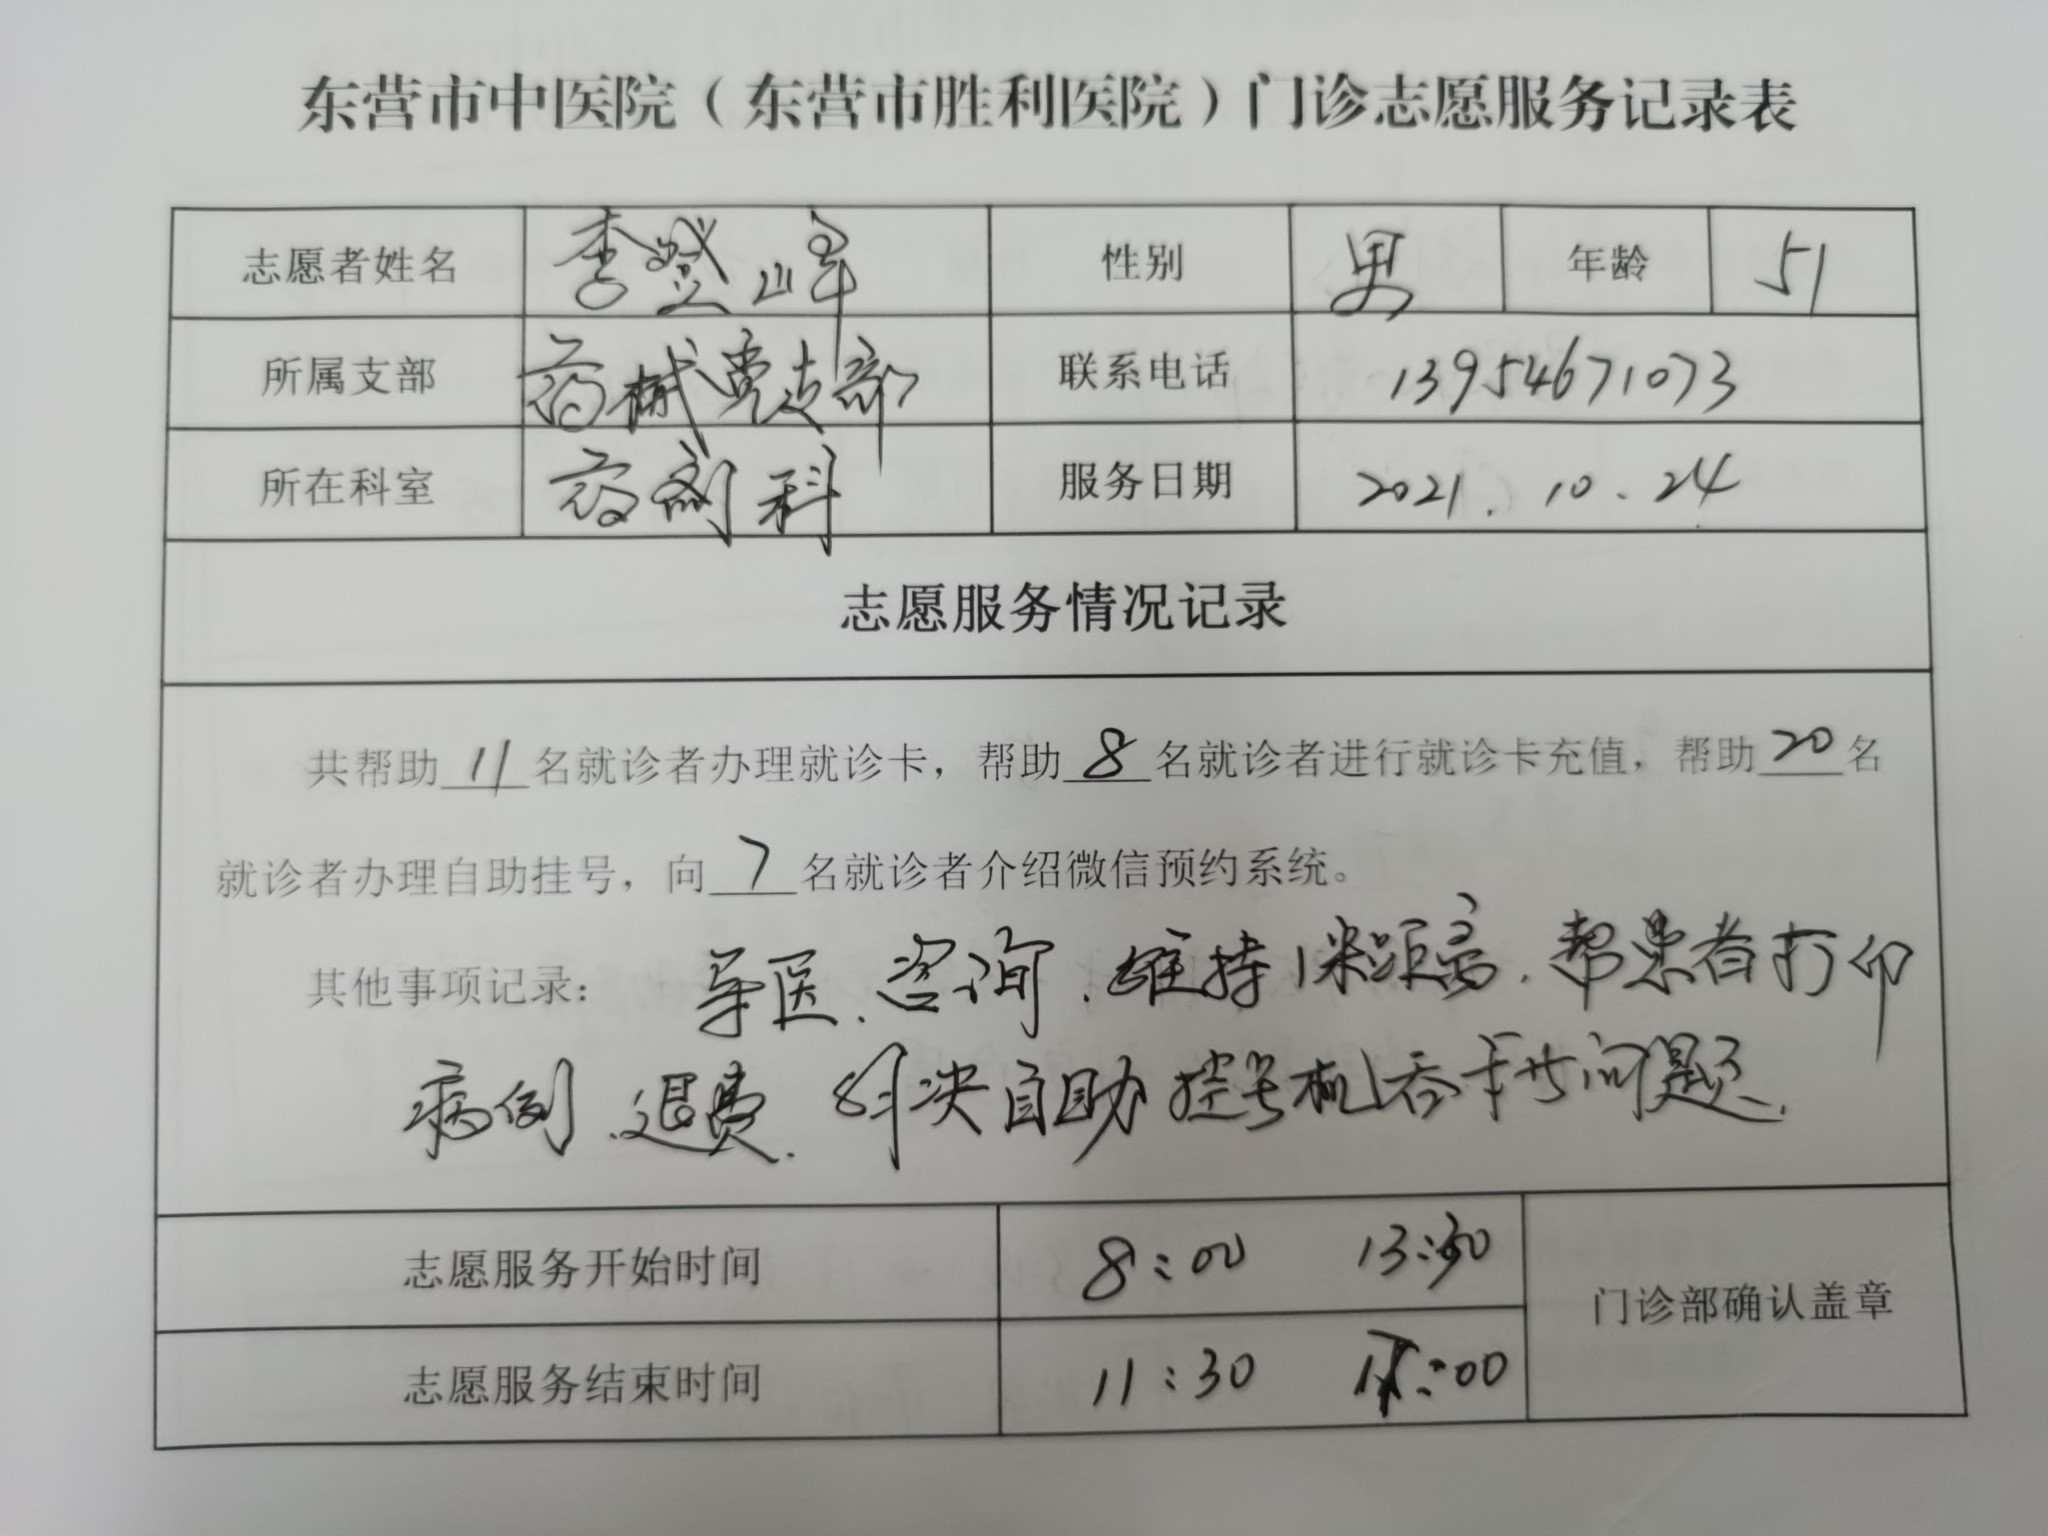 东营市中医院（东营市胜利医院）门诊志愿服务记录表
志愿者姓名 李登峰 性别 男 年龄 51
所属支部 药械党支部 联系电话 13954671073
所在科室 药剂科 服务日期 2021.10.24
志愿服务情况记录
共帮助11名就诊者办理就诊卡，帮助8名就诊者进行就诊卡充值，帮助20名
就诊者办理自助挂号，向7名就诊者介绍微信预约系统。
其他事项记录：导医、咨询、维持1米距离、帮患者打印
病例、退费、解决自助挂号机吞卡等问题。
志愿服务开始时间 8:00 13:30
门诊部确认盖章
志愿服务结束时间 11:30 :00